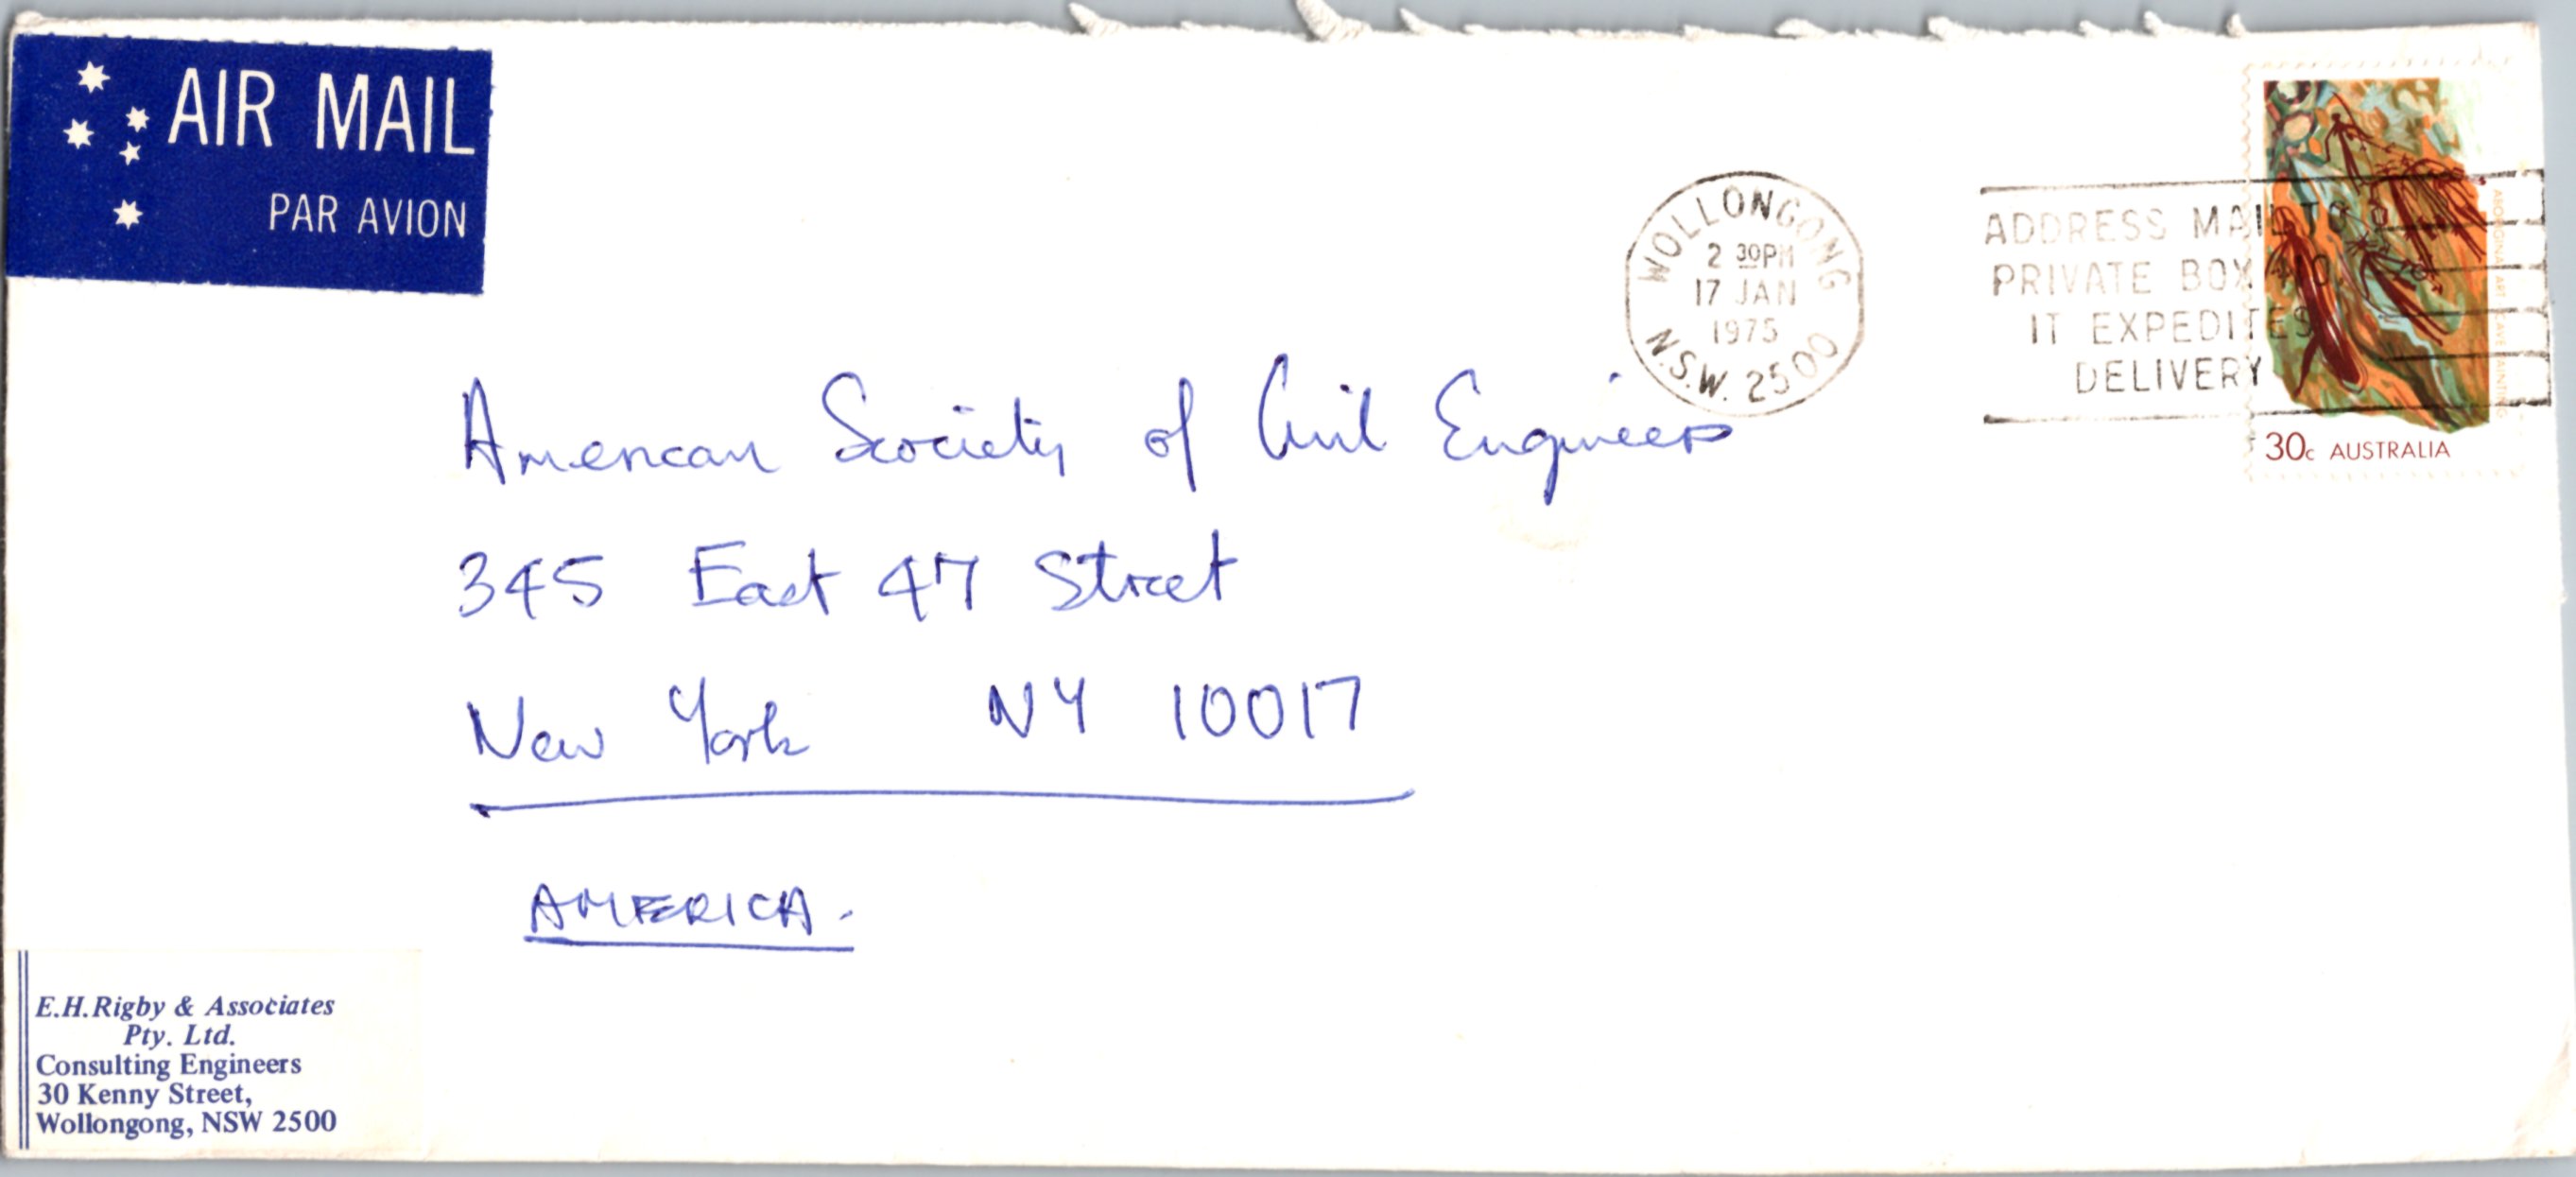 AIR MAIL
PAR AVION
WOLLONGONG
2 30PM
17 JAN
1975
N.S.W. 2500
ADDRESS MAIL TO
PRIVATE BOX NO.
IT EXPEDITES
DELIVERY
ABORIGINAL ART CAVE PAINTING
30c AUSTRALIA
American Society of Civil Engineers
345 East 47 Street
New York NY 10017
AMERICA.
E.H.Rigby & Associates
Pty. Ltd.
Consulting Engineers
30 Kenny Street,
Wollongong, NSW 2500